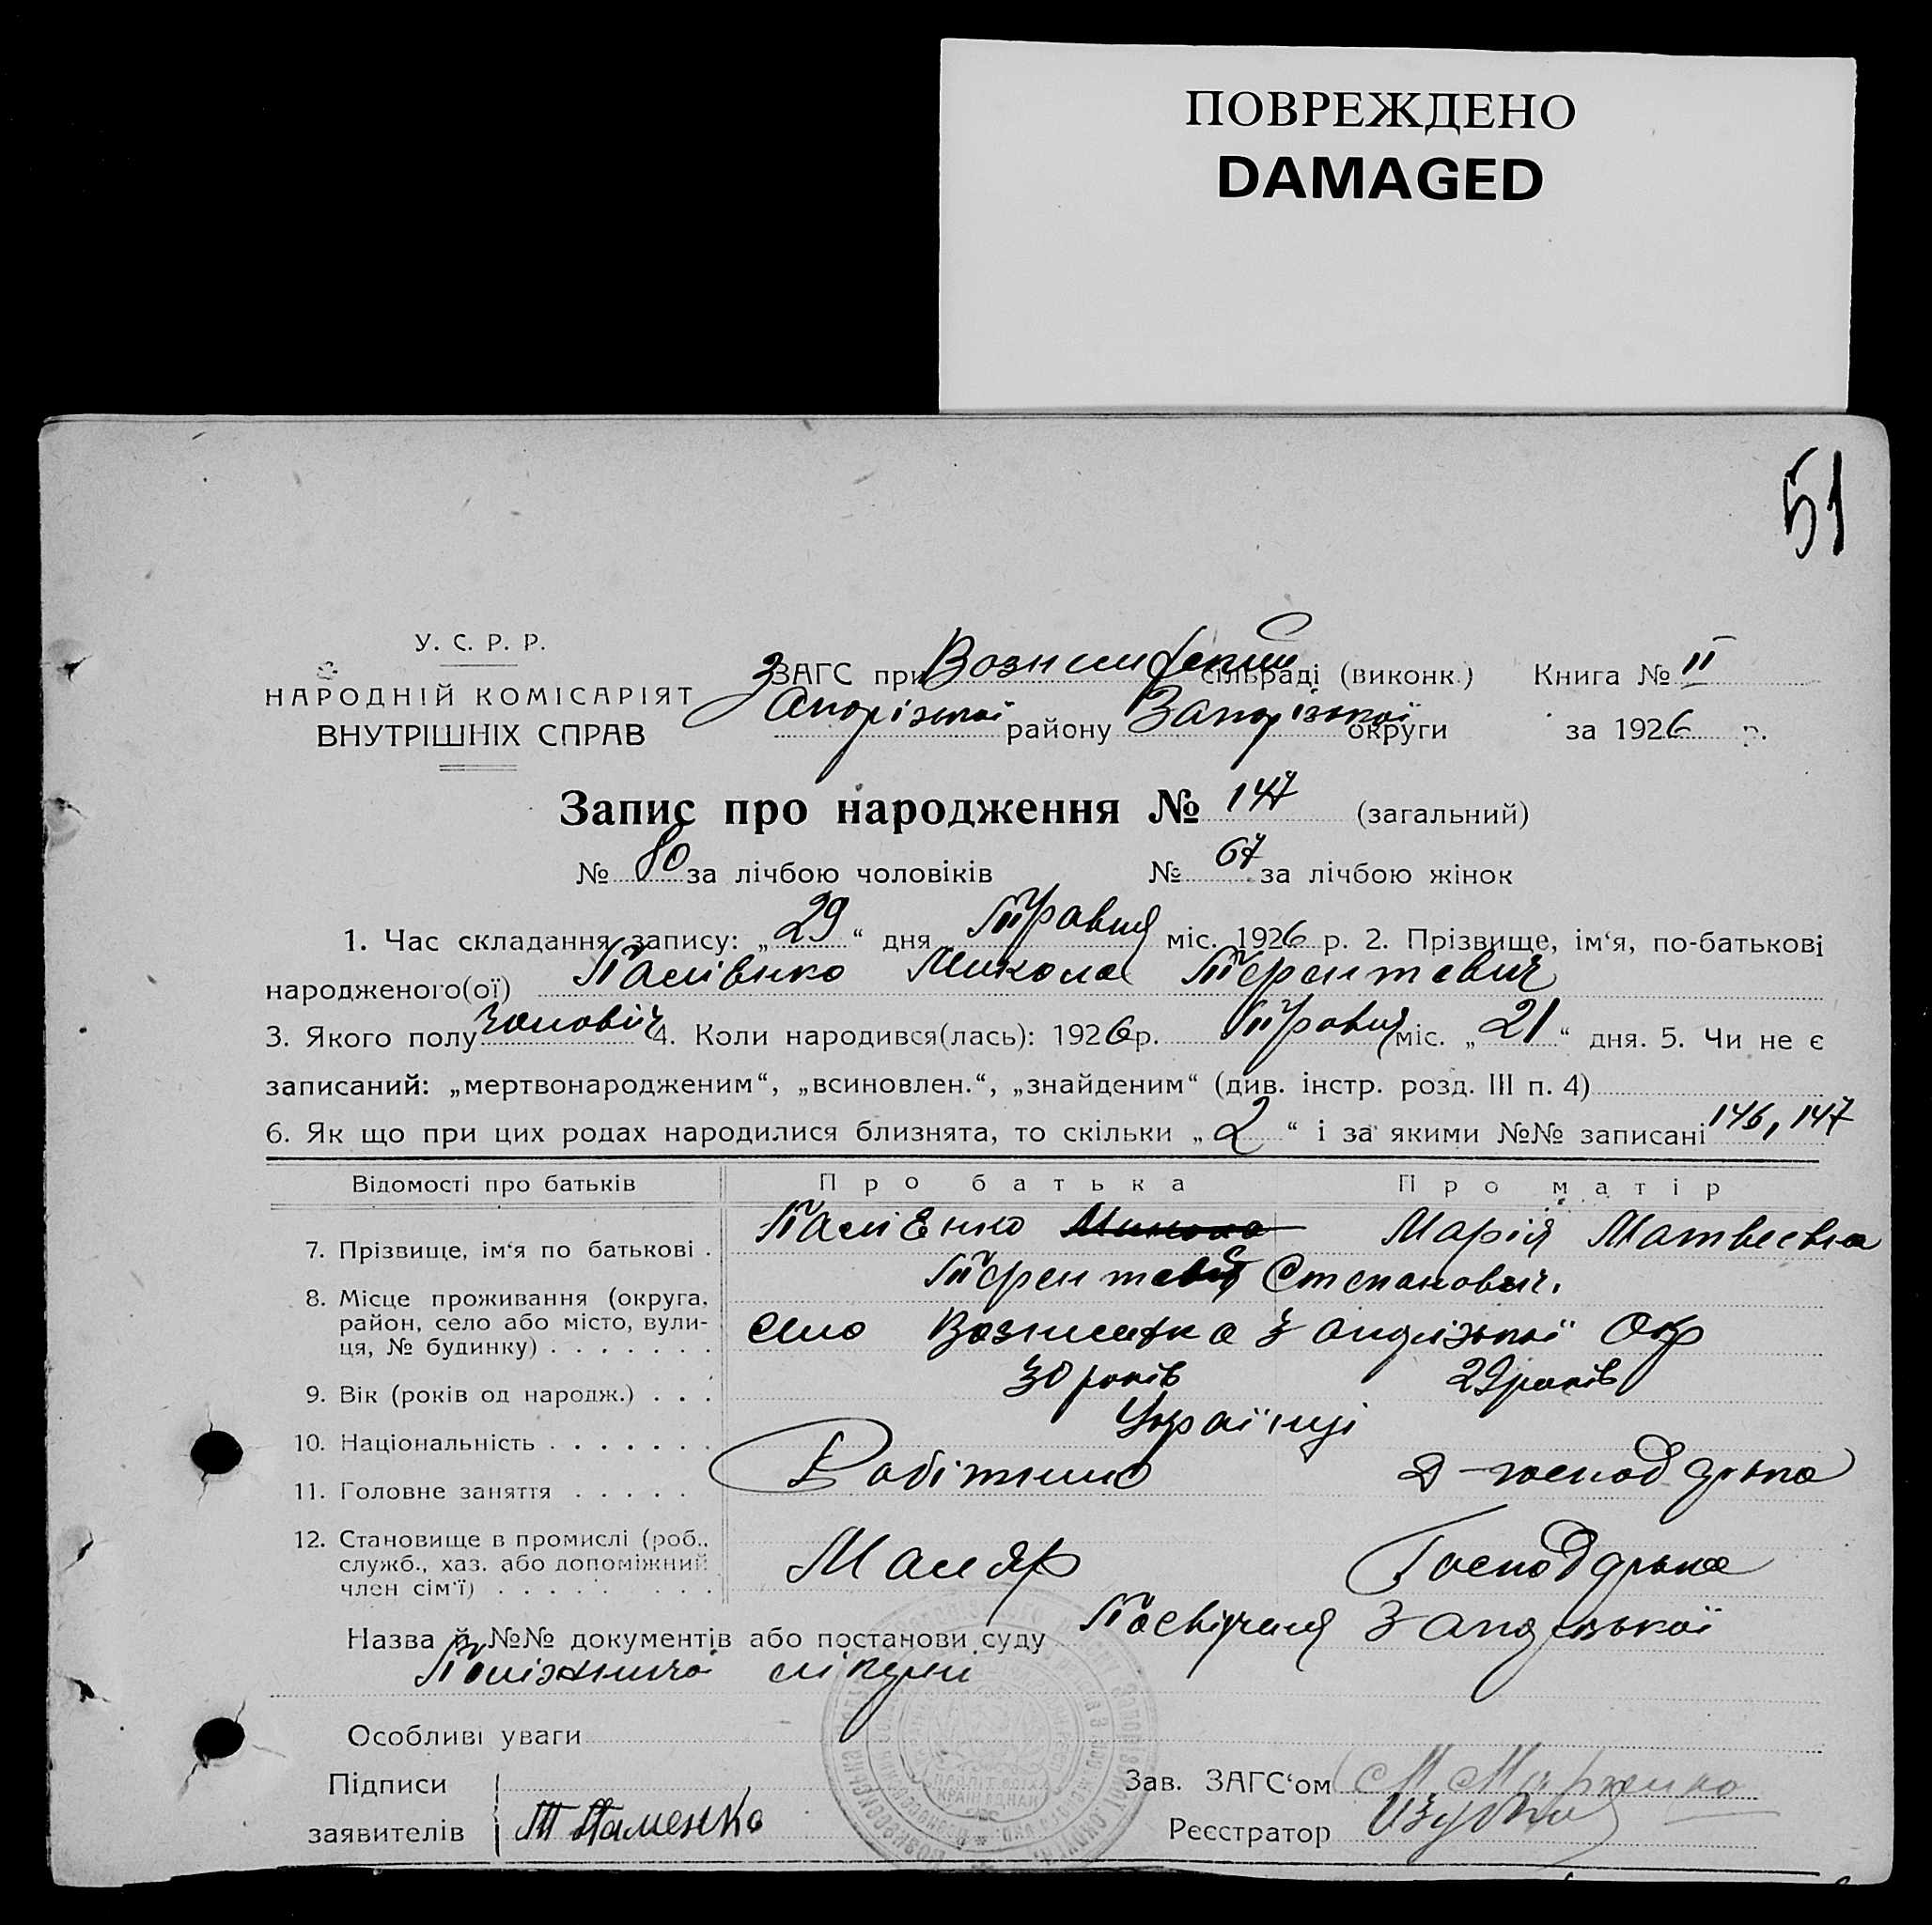 ПОВРЕЖДЕНО
DAMAGED
51
У. С. Р. Р.
НАРОДНІЙ КОМІСАРІЯТ
ВНУТРІШНІХ СПРАВ
ЗАГС при сільраді (виконк.) Книга № II
Запорізької району Запорізької округи за 1926 р.
Запис про народження № 147 (загальний)
№ 80 за лічбою чоловіків № 67 за лічбою жінок
1. Час складання запису: „29“ дня Травня міс. 1926 р. 2. Прізвище, ім‘я, по-батькові
народженого(ої) Микола Терентевич
3. Якого полу чоловіч 4. Коли народився(лась): 1926 р. Травня міс. „21“ дня. 5. Чи не є
записаний: „мертвонародженим“, „всиновлен.“, „знайденим“ (див. інстр. розд. III п. 4)
6. Як що при цих родах народилися близнята, то скільки „2“ і за якими №№ записані 146, 147
Відомості про батьків Про батька Про матір
7. Прізвище, ім‘я по батькові . Микола Марія Матвеевна
Степанович.
8. Місце проживання (округа,
район, село або місто, вули-
ця, № будинку) . . . . . . . село Вознесенка Запорізької Окр
9. Вік (років од народж.) . . . 30 років 29 років
10. Національність . . . . . . . Українці
11. Головне заняття . . . . . Робітник Д-господарька
12. Становище в промислі (роб.,
служб., хаз. або допоміжний
член сім‘ї) . . . . . . . . Маляр Господарька
Назва й №№ документів або постанови суду Посвідчення Запорізької
лікарні
Особливі уваги
Підписи
заявителів
Зав. ЗАГС‘ом
Реєстратор